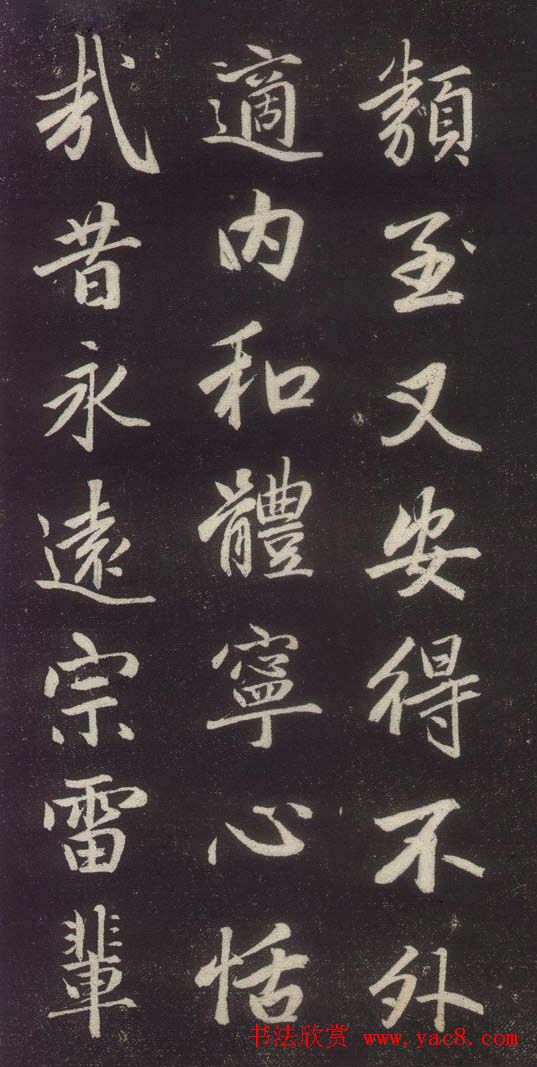 類至又安得不外
適内和體寧心恬
哉昔永遠宗雷輩
书法欣赏 www.yac8.com